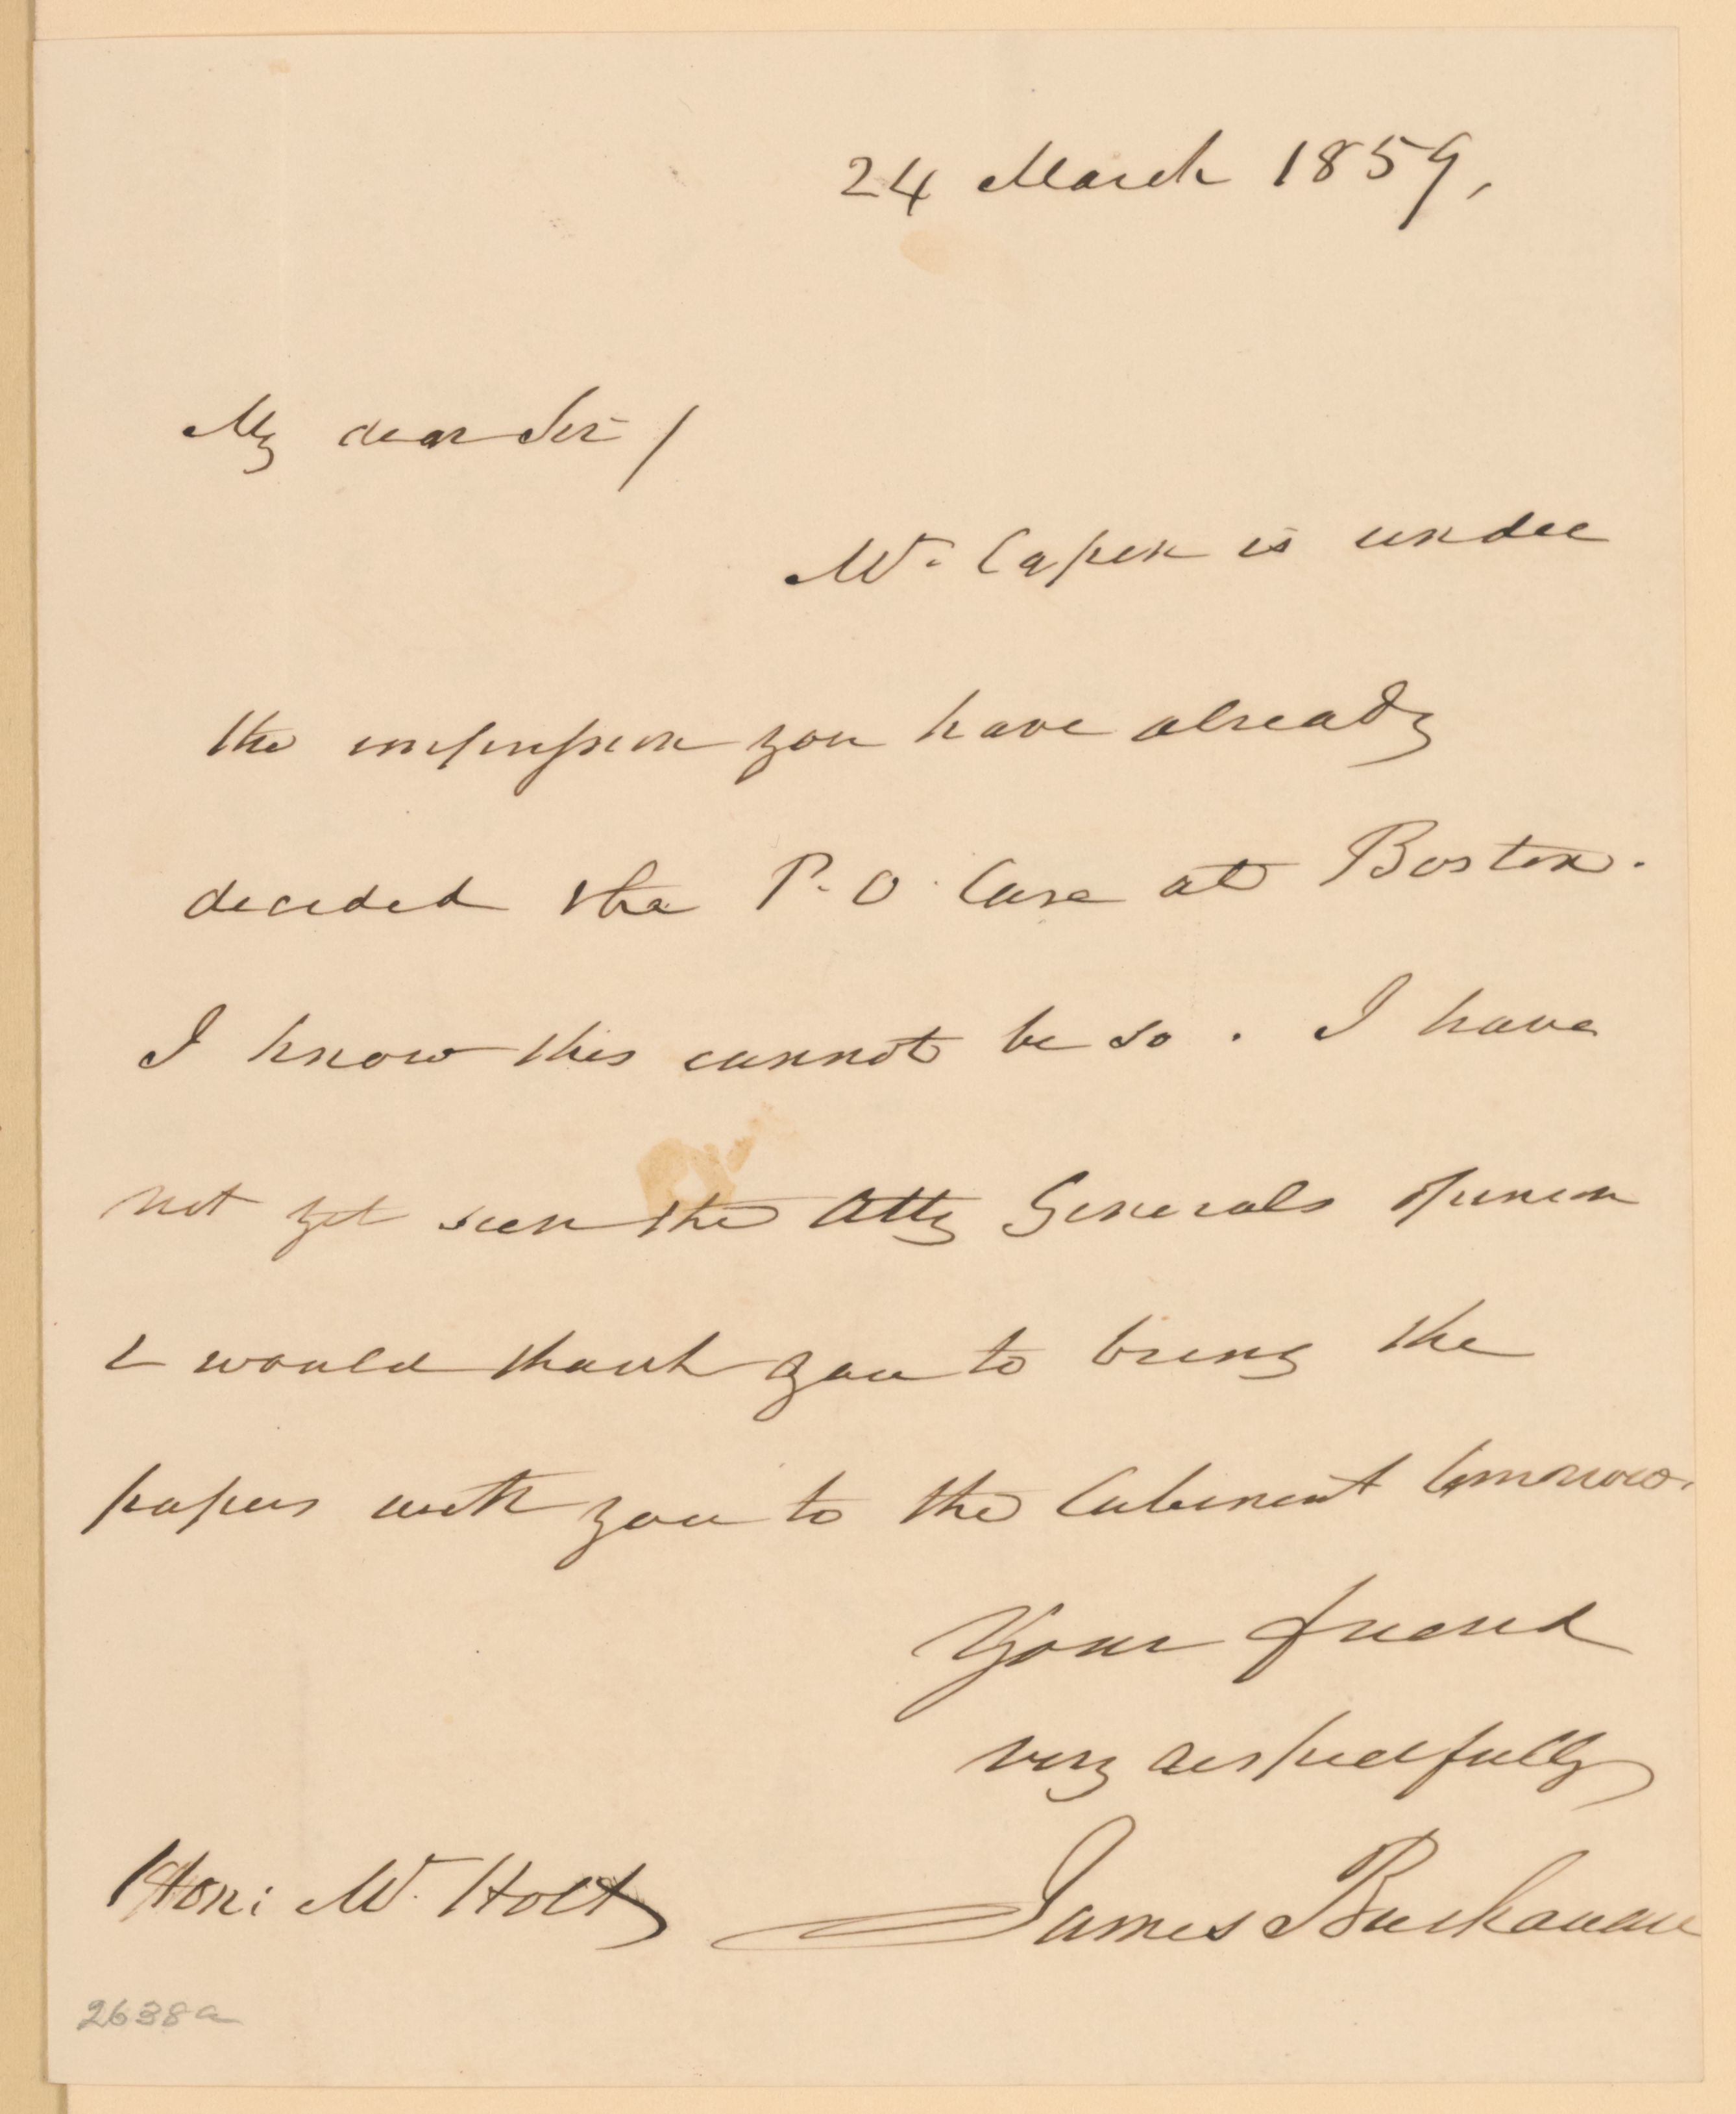 24 March 1859.
My dear Sir/
Mr. Capen is under
the impression you have already
decided the P. O. Case at Boston.
I know this cannot be so. I have
not yet seen the Atty Generals opinion
& would thank you to bring the
papers with you to the Cabinent tomorrow.
Your friend
very respectfully
James Buchanan
Hon: Mr. Holt
2638a